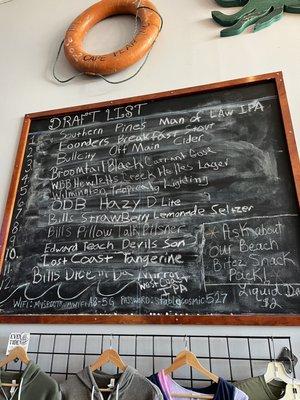 CAPE FEAR
DRAFT LIST
1. Southern Pines Man of Law IPA
2. Founders Breakfast Stout
3. Bullcity Off Main Cider
4. Broomtail Black Currant Gose
5. WBB Howells Creek Helles Lager
6. Wilmington Tropical Lighting
7. ODB Hazy D Lite
8. Bills Strawberry Lemonade Seltzer
9. Bills Pillow Talk Pilsner
10. Edward Teach Devils Son
11. Lost Coast Tangerine
12. Bills Dice in Da Mirror
West Coast IPA
* Ask about
Our Beach
Bitez Snack
Pack!
Liquid Death
$2
WIFI: 5G PASSWORD: stablecosmic527